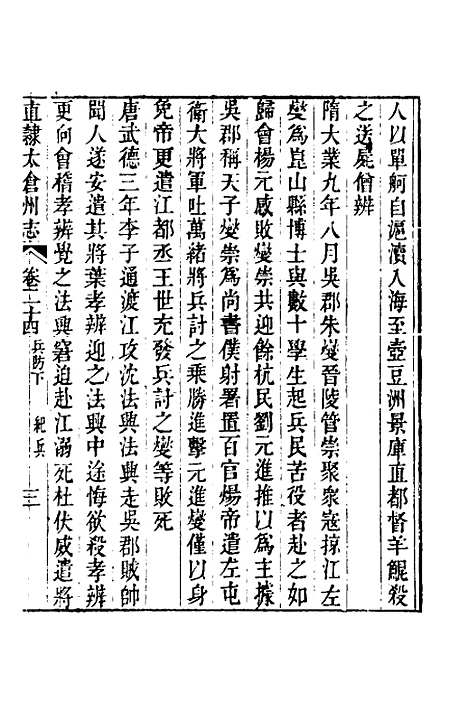 人以單舸自滬瀆入海至壺豆洲景庫直都督羊鯤殺
之送屍僧辨
隋大業九年八月吳郡朱燮晉陵管崇聚衆寇掠江左
燮爲崑山縣博士與數十學生起兵民苦役者赴之如
歸會楊元感敗燮崇共迎餘杭民劉元進推以爲主據
吳郡稱天子燮崇爲尚書僕射署置百官煬帝遣左屯
衛大將軍吐萬緒將兵討之乘勝進擊元進燮僅以身
免帝更遣江都丞王世充發兵討之燮等敗死
唐武德三年李子通渡江攻沈法興法興走吳郡賊帥
聞人遂安遣其將葉孝辨迎之法興中途悔欲殺孝辨
更向會稽孝辨覺之法興窘迫赴江溺死杜伏威遣將
直隸太倉州志 卷二十四 兵防下 紀兵 三